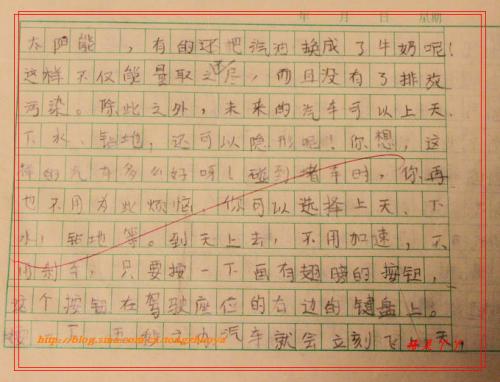 年 月 日 星期
太阳能，有的还把汽油换成了牛奶呢！
这样不仅能量取之不尽，而且没有了排放
污染。除此之外，未来的汽车可以上天、
下水、钻地，还可以隐形呢！你想，这
样的汽车多么好呀！碰到堵车时，你再
也不用为此烦恼，你可以选择上天、下
水，钻地等。到天上去，不用加速，不
用刹车，只要按一下画有翅膀的按钮，
这个按钮在驾驶座位的右边的键盘上。
按一下，汽车就会立刻飞
http://blog.sina.com.cn